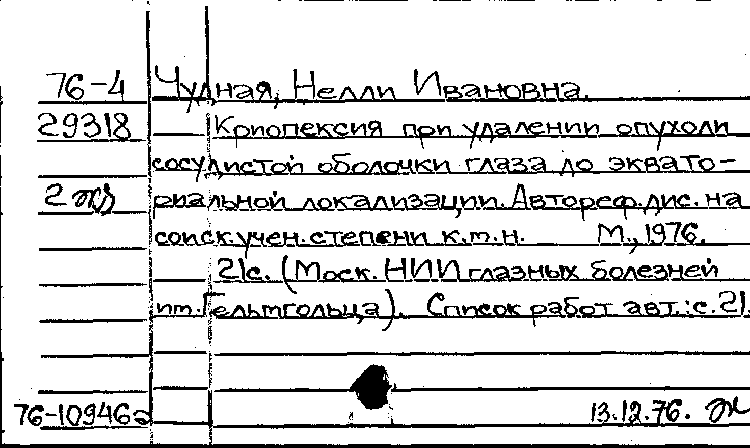 76-4 Чудная, Нелли Ивановна.
29318 Криопексия при удалении опухоли
сосудистой оболочки глаза до эквато-
2 экз риальной локализации. Автореф. дис. на
соиск. учен. степени к.т.н. М., 1976.
21с. (Моск. НИИ глазных болезней
им. Гельмгольца). Список работ авт.: с. 21.
76-10946а 13.12.76.